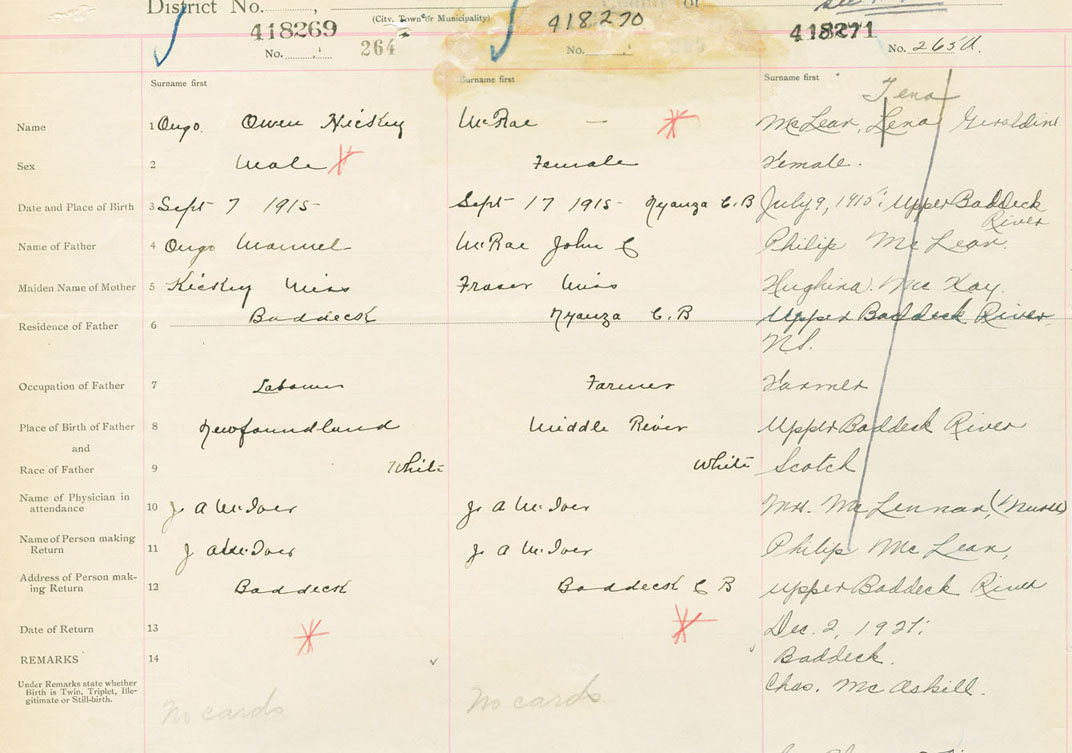 District No.
(City, Town or Municipality)
of
418269
418270
418271
No. 264
No.
No. 265a.
Surname first
Surname first
Surname first
Tena
Name 1 Ongo Owen Hickey McRae — McLean, Lena Geraldine
Sex 2 Male Female Female.
Date and Place of Birth 3 Sept 7 1915 Sept 17 1915 Nyanza C.B July 9, 1915: Upper Baddeck
River
Name of Father 4 Ongo Manuel McRae John C Philip McLean.
Maiden Name of Mother 5 Hickey Miss Fraser Miss Hughina McKay.
Residence of Father 6 Baddeck Nyanza C.B Upper Baddeck River
NS.
Occupation of Father 7 Labourer Farmer Farmer
Place of Birth of Father 8 Newfoundland Middle River Upper Baddeck River
and
Race of Father 9 White White Scotch
Name of Physician in
attendance 10 J A McIver J A McIver Mrs. McLennan, (Nurse)
Name of Person making
Return 11 J A McIver J A McIver Philip McLean,
Address of Person mak-
ing Return 12 Baddeck Baddeck C B Upper Baddeck River
Date of Return 13 Dec. 2, 1921:
REMARKS 14 Baddeck.
Under Remarks state whether
Birth is Twin, Triplet, Ille-
gitimate or Still-birth.
Chas. McAskill.
No cards No cards